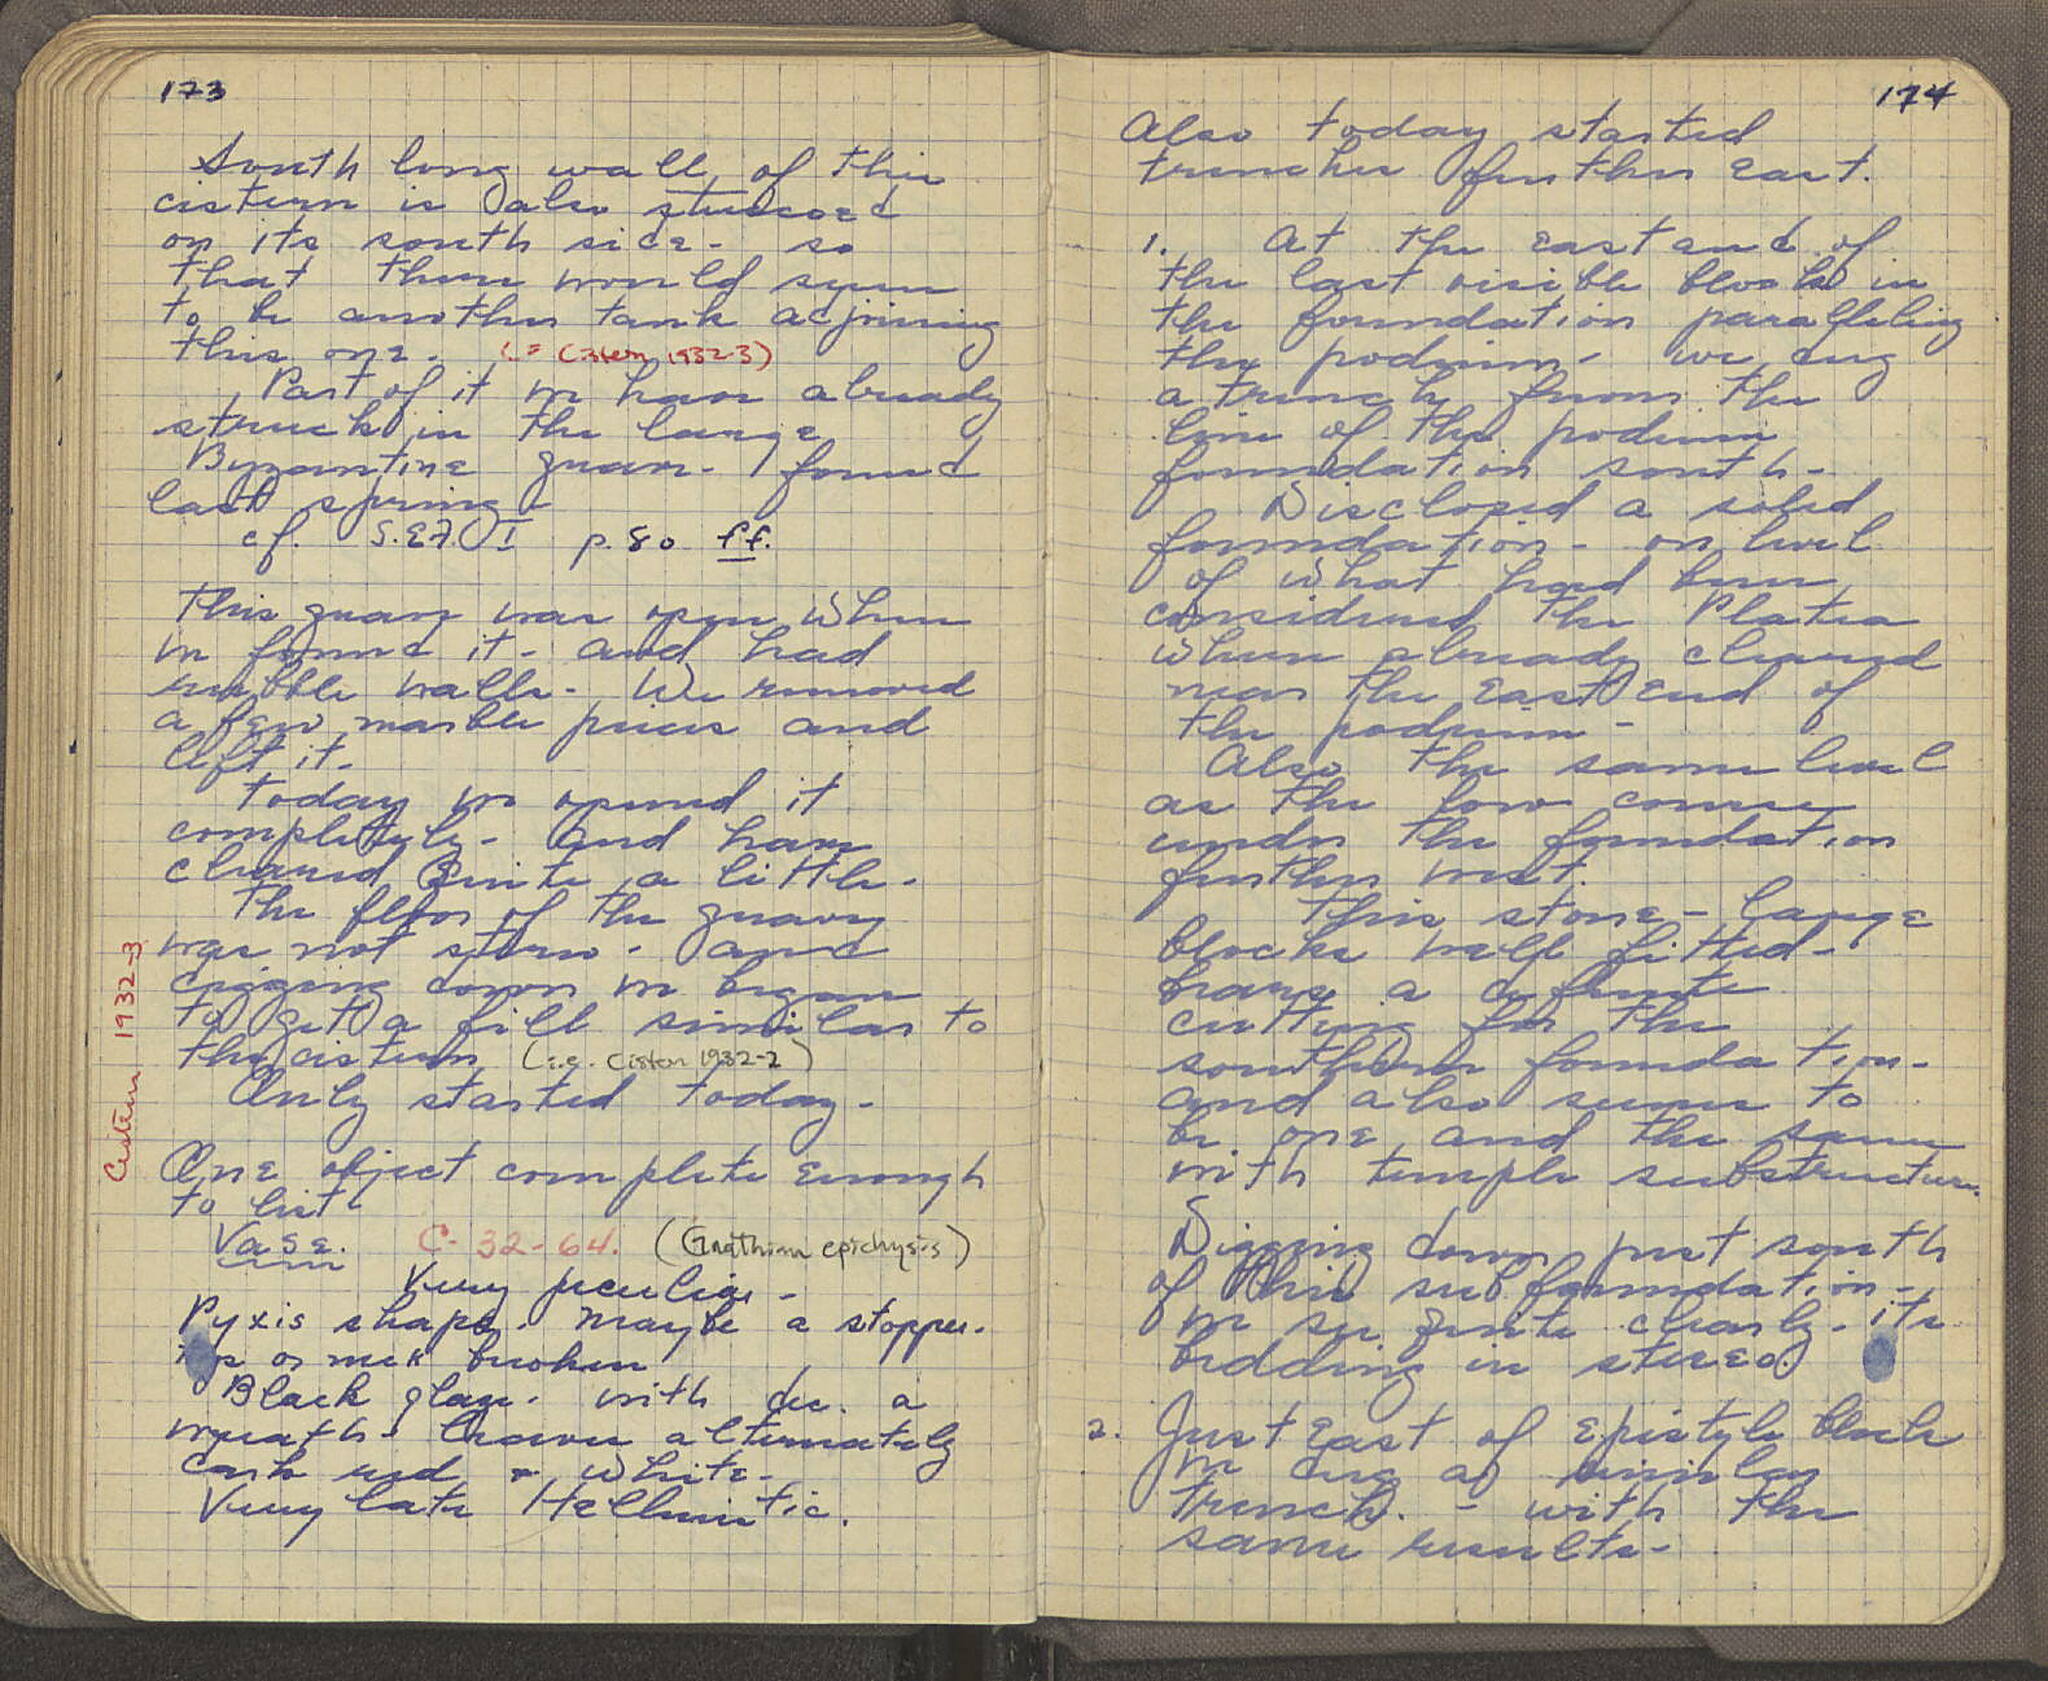 173
South long wall of this
cistern is also stuccoed
on its south side - so
that there would seem
to be another tank adjoining
this one. (= Cistern 1932-3)
Part of it we have already
struck in the large
Byzantine grave - found
last spring
cf. p. 80 ff.
This grave was open when
we found it - and had
rubble walls - We removed
a few marble pieces and
left it -
Today we opened it
completely - and have
cleared quite a little -
The floor of the grave
was not stereo - and
digging down we began
to get a fill similar to
the cistern (i.e. Cistern 1932-2)
Only started today -
Cistern 1932-3
One object complete enough
to list
Vase. C-32-64. (Gnathian epichysis)
Very peculiar -
Pyxis shape - maybe a stopper.
or neck broken
Black glaze - with dec. a
wreath - leaves alternately
dark red & white -
Very late Hellenistic.
174
Also today started
trenches further East.
1. At the east end of
the last visible block in
the foundation paralleling
the podium - we dug
a trench from the
line of the podium
foundation south -
Disclosed a solid
foundation - on level
of what had been
considered the Platea
when already cleared
near the East end of
the podium -
Also the same level
as the low course
under the foundation
further west.
This stone - large
blocks well fitted -
bears a definite
cutting for the
southern foundation -
and also seems to
be one and the same
with temple substructure.
Digging down just south
of this sub foundation -
we see quite clearly - its
bedding in stereo.
2. Just East of Epistyle block
we dug a similar
trench. - with the
same results -